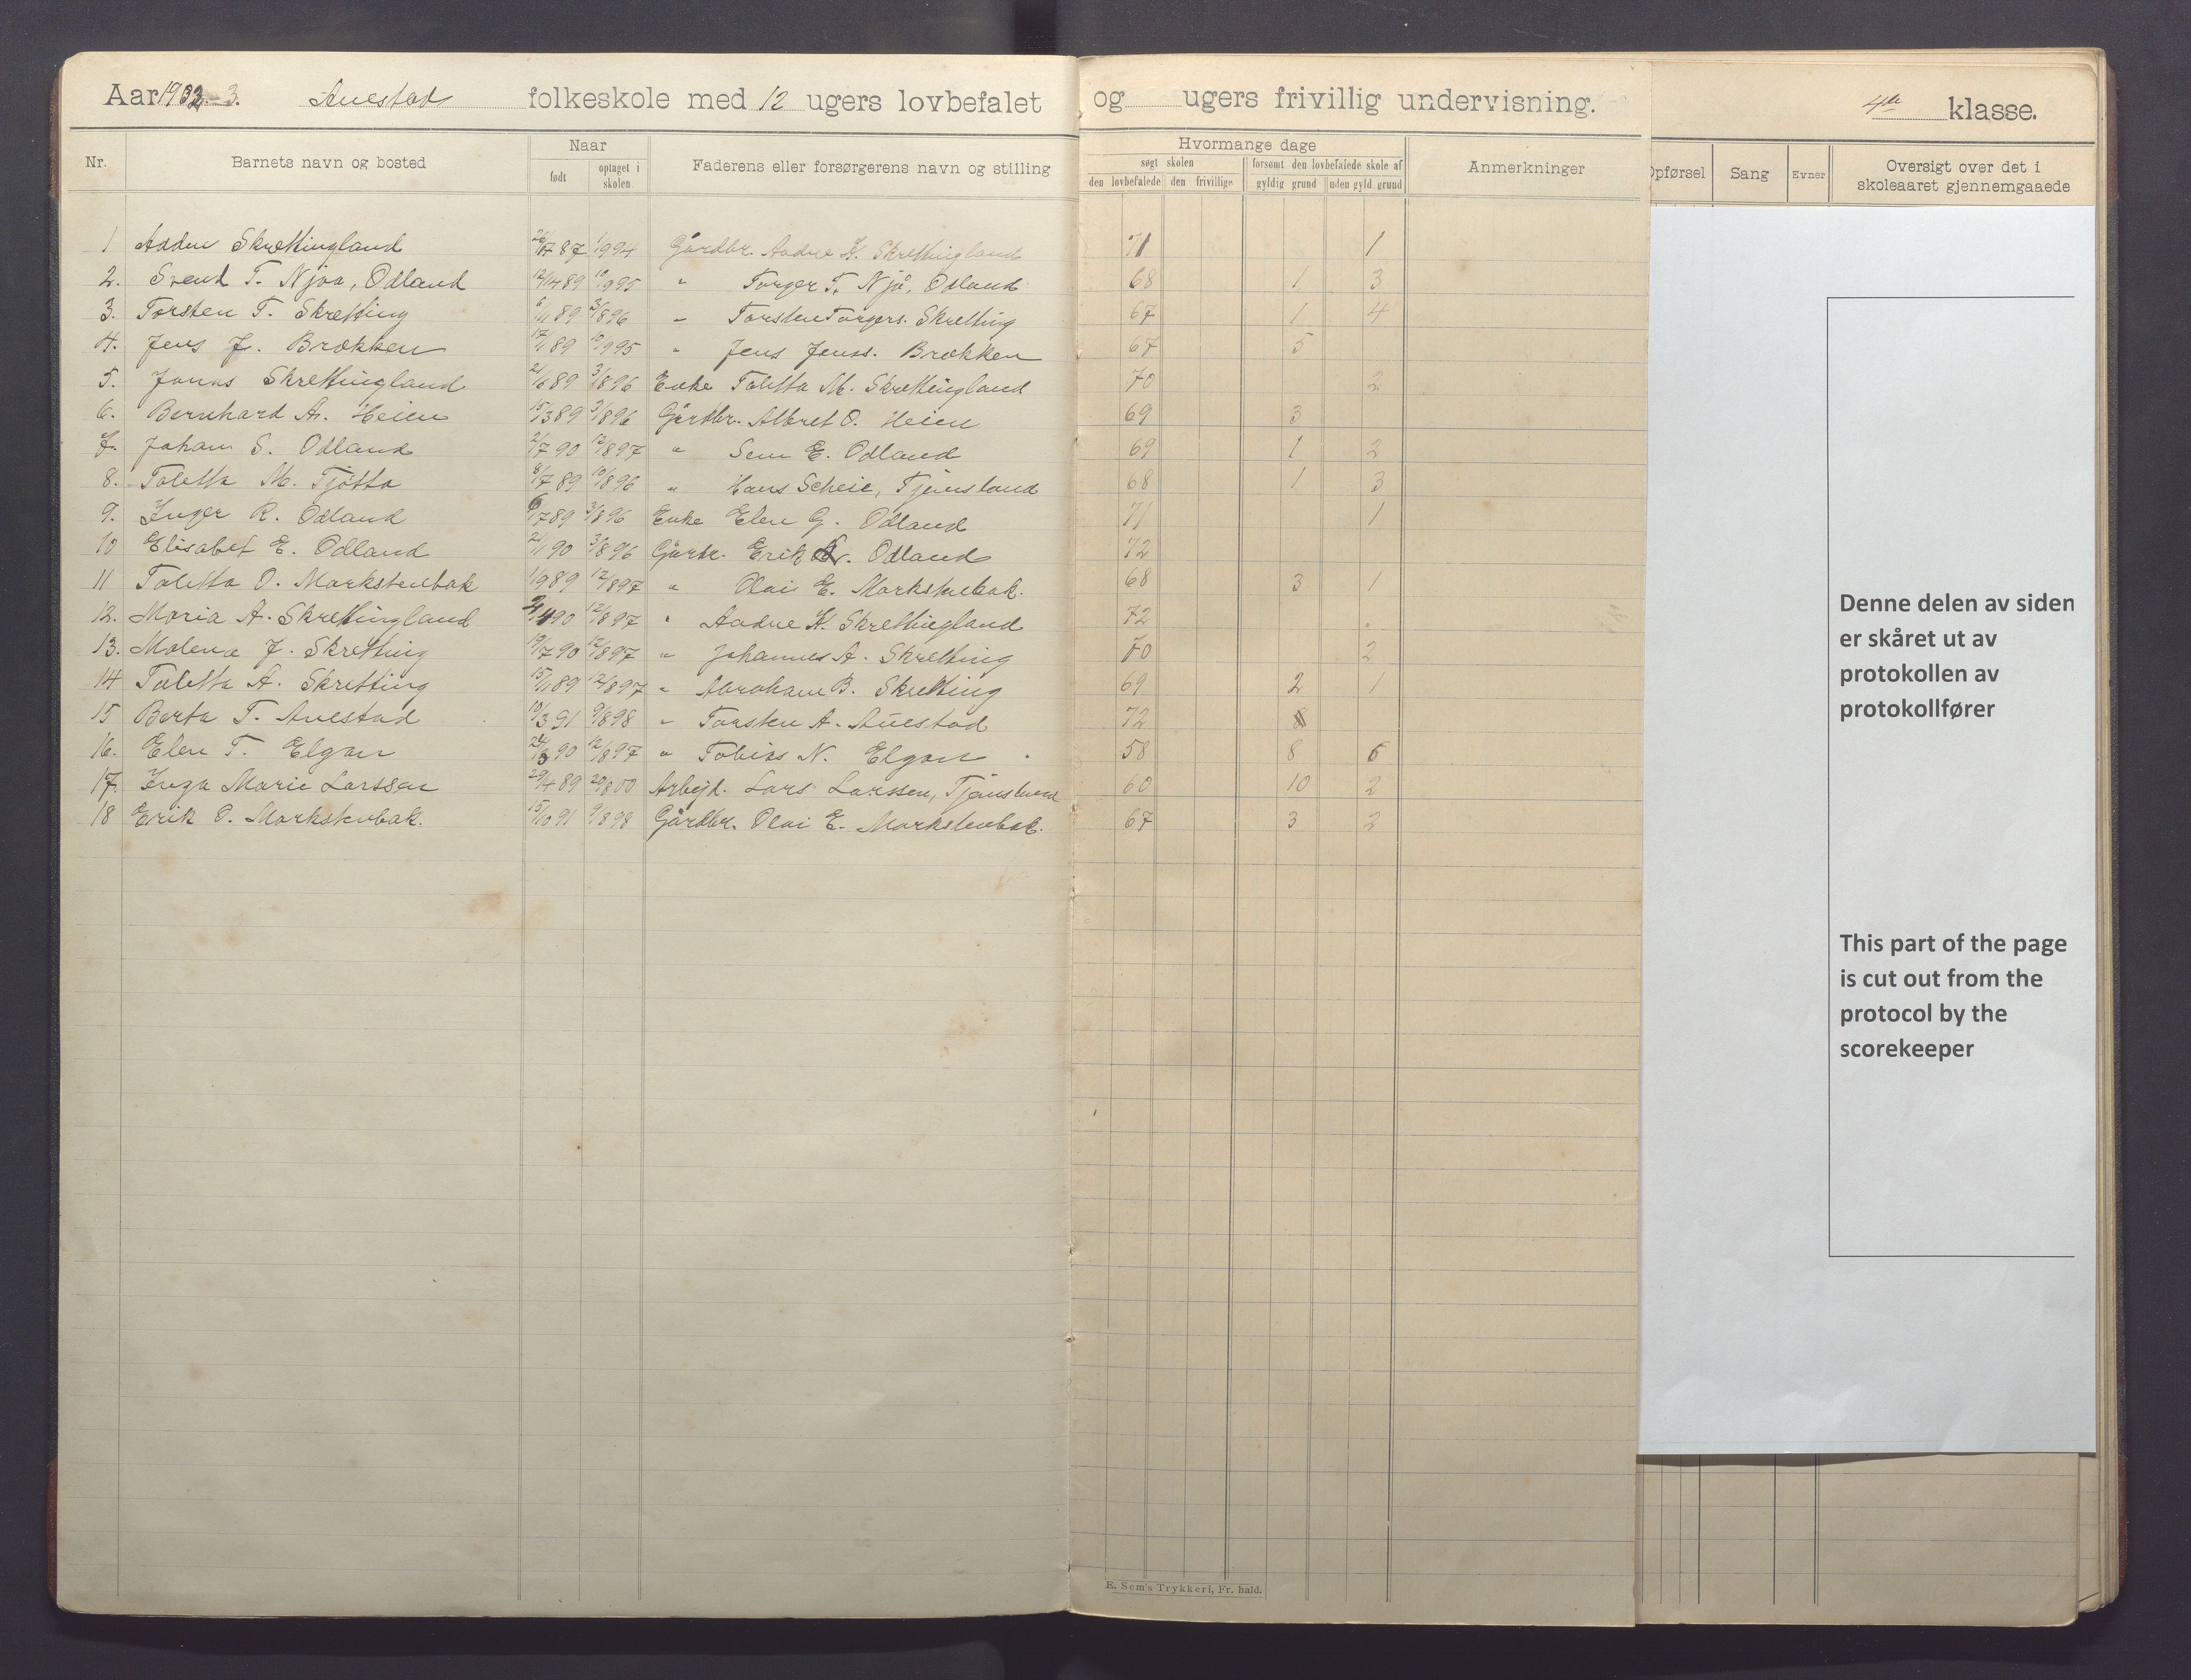 Aar 1902-3. Auestad folkeskole med 12 ugers lovbefalet og ugers frivillig undervisning. 4de klasse.
Nr. Barnets navn og bosted Naar født optaget i skolen Faderens eller forsørgerens navn og stilling Hvormange dage søgt skolen den lovbefalede den frivillige forsømt den lovbefalede skole af gyldig grund uden gyld. grund Anmerkninger Opførsel Sang Evner Oversigt over det i skoleaaret gjennemgaaede
1 Aadne Skrettingland 26/7 87 1/9 94 Gårdbr. Aadne K. Skrettingland 71 1
2. Svend T. Njaa, Odland 12/4 89 10/9 95 " Torger T. Njå, Odland 68 1 3
3. Torsten T. Skretting 6/1 89 3/8 96 " Torsten Torgers. Skretting 67 1 4
4. Jens J. Brækken 17/1 89 10/9 95 " Jens Jenss. Brækken 67 5
5. Jonas Skrettingland 21/6 89 3/8 96 Enke Taletta M. Skrettingland 70 2
6. Bernhard A. Heien 15/3 89 3/8 96 Gårdbr. Albret O. Heien 69 3
7. Johan S. Odland 2/7 90 12/8 97 " Sem E. Odland 69 1 2
8. Taletta M. Tjøtta 8/7 89 10/8 96 " Hans Scheie, Tjensland 68 1 3
9. Inger R. Odland 6/7 89 3/8 96 Enke Elen G. Odland 71 1
10 Elisabet E. Odland 21/1 90 3/8 96 Gårbr. Erik Odland 72
11 Taletta O. Markstenbak 1/9 89 12/8 97 " Olai E. Markstenbak. 68 3 1
12. Maria A. Skrettingland 2/4 90 12/8 97 " Aadne K. Skrettingland 72
13. Malena J. Skretting 19/7 90 12/8 97 " Johannes A. Skretting 70 2
14 Taletta A. Skretting 15/1 89 12/8 97 " Abraham B. Skretting 69 2 1
15 Berta T. Auestad 10/3 91 9/8 98 " Torsten A. Auestad 72
16. Elen T. Elgan 24/3 90 12/8 97 " Tobias N. Elgan 58 8 6
17. Inga Marie Larssen 29/4 89 20/8 00 Arbejd. Lars Larssen, Tjensland 60 10 2
18 Erik O. Markstenbak. 15/10 91 9/8 98 Gårdbr. Olai E. Markstenbak. 67 3 2
E. Sem's Trykkeri, Fr. hald.
Denne delen av siden
er skåret ut av
protokollen av
protokollfører
This part of the page
is cut out from the
protocol by the
scorekeeper